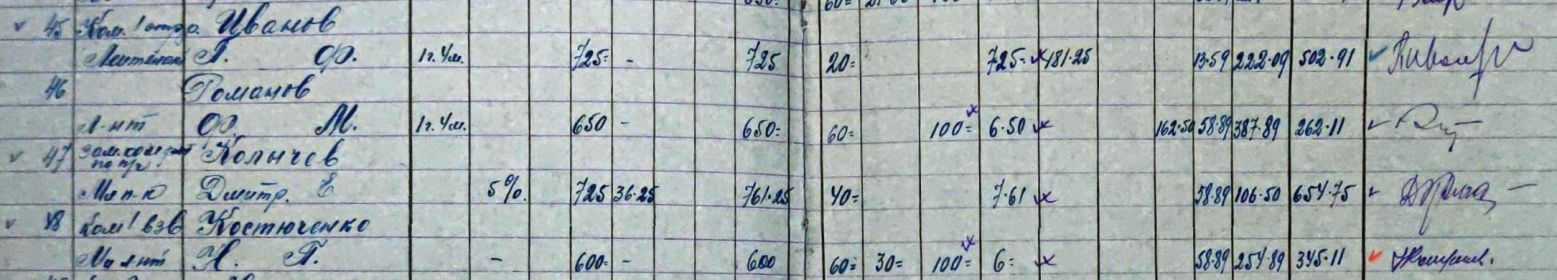 45 Ком. 1 отд. Иванов
Лейтенан П. Ф. 1г. 4м. 725= - 725 20= 7.25= 181.25 13.59 222.09 502.91
46 Романов
Л-нт Ф. М. 1г. 4м. 650 - 650= 60= 100= 6.50 162.50 58.89 387.89 262.11
47 Зам. ком. Колычев
по п/ч
Мл п-к Дмитр. Е 5% 725 36.25 761.25 40= 7.61 58.89 106.50 654.75
48 Ком 1 взв Костюченко
Мл лнт Н. П. - 600= - 600 60= 30= 100= 6= 58.89 254.89 345.11